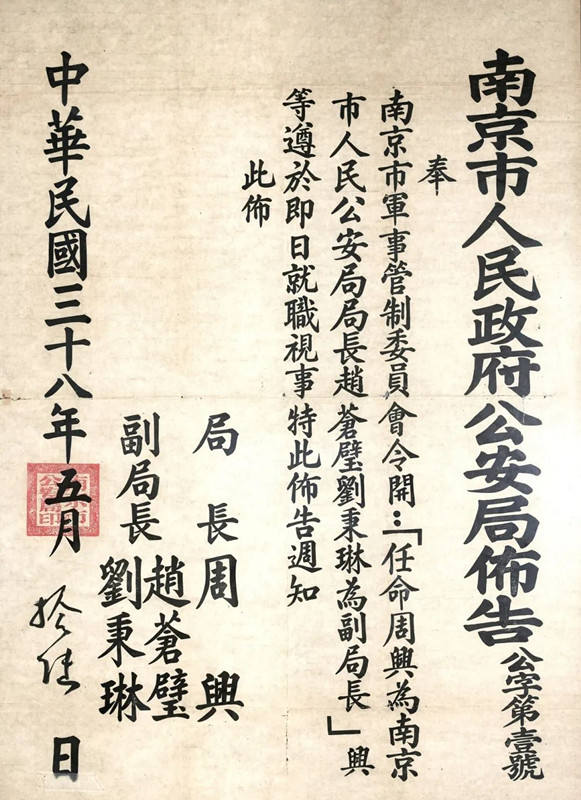 南京市人民政府公安局佈告
公字第壹號
奉
南京市軍事管制委員會令開：「任命周興為南京
市人民公安局局長趙蒼璧劉秉琳為副局長」興
等遵於即日就職視事特此佈告週知
此佈
局長周興
副局長趙蒼璧
劉秉琳
中華民國三十八年五月拾陸日